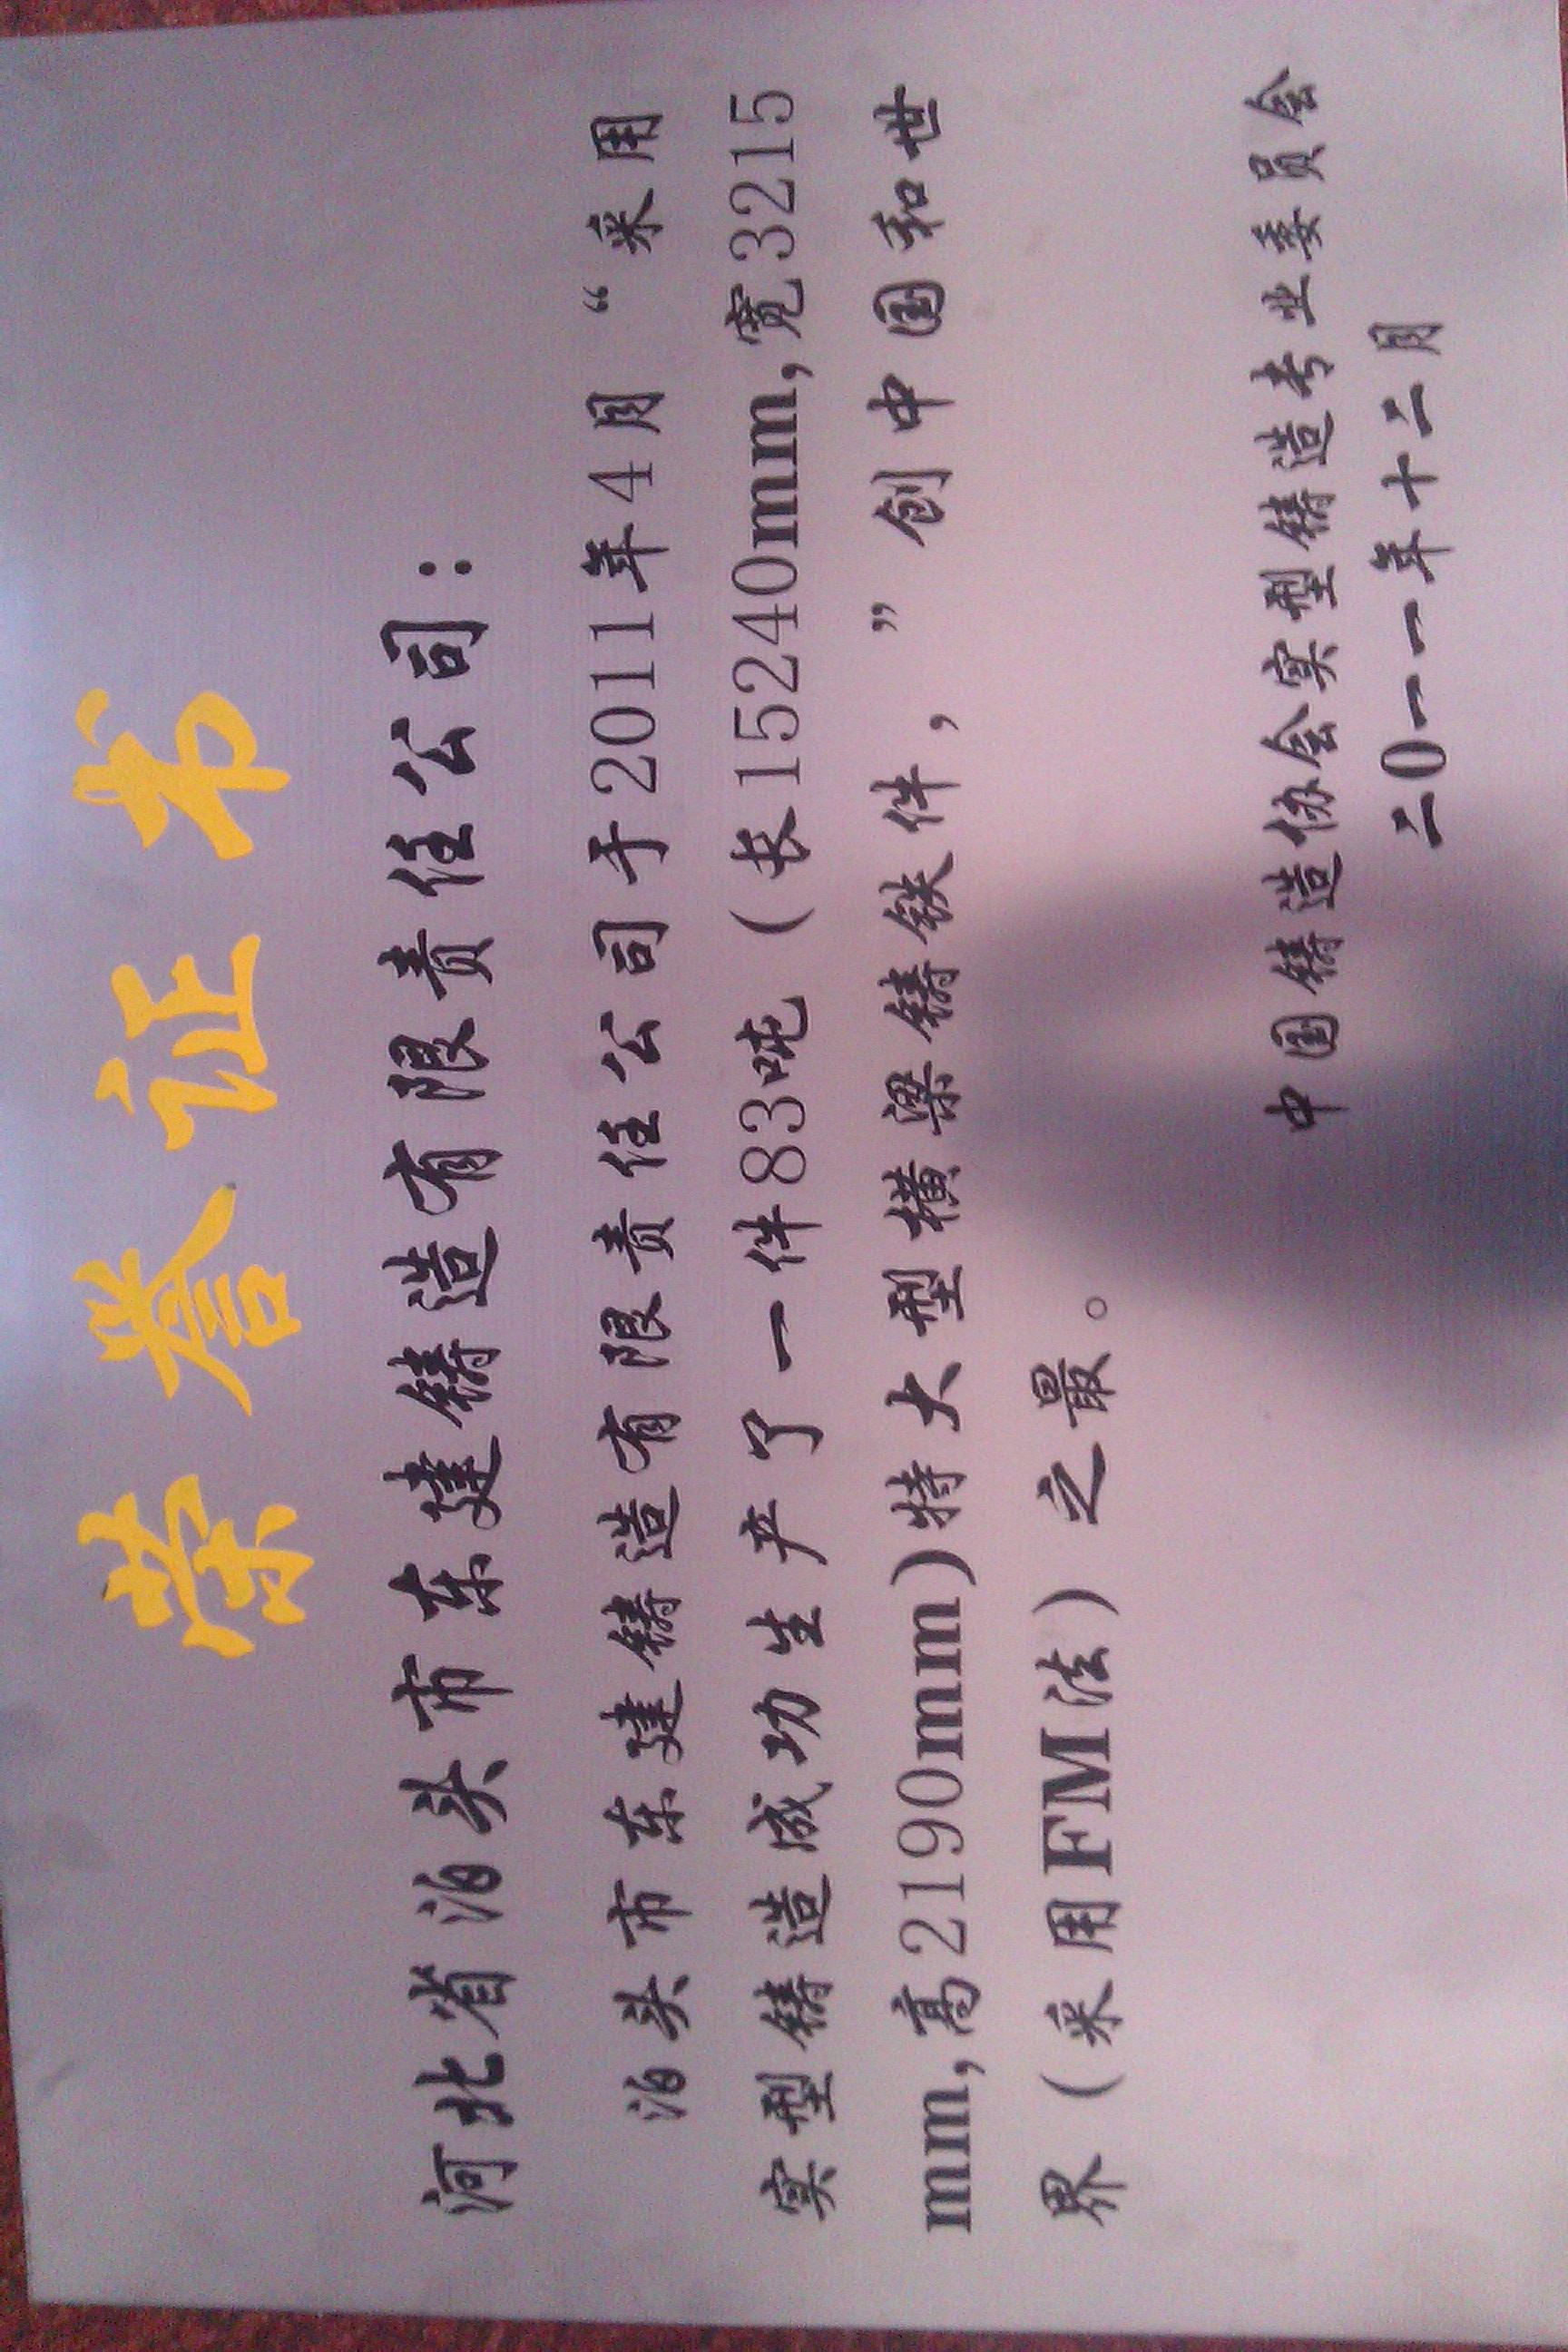 荣誉证书
河北省泊头市东建铸造有限责任公司：
泊头市东建铸造有限责任公司于2011年4月“采用
实型铸造成功生产了一件83吨（长15240mm,宽3215
mm,高2190mm)特大型横梁铸铁件，”创中国和世
界（采用FM法）之最。
中国铸造协会实型铸造专业委员会
二0一一年十二月